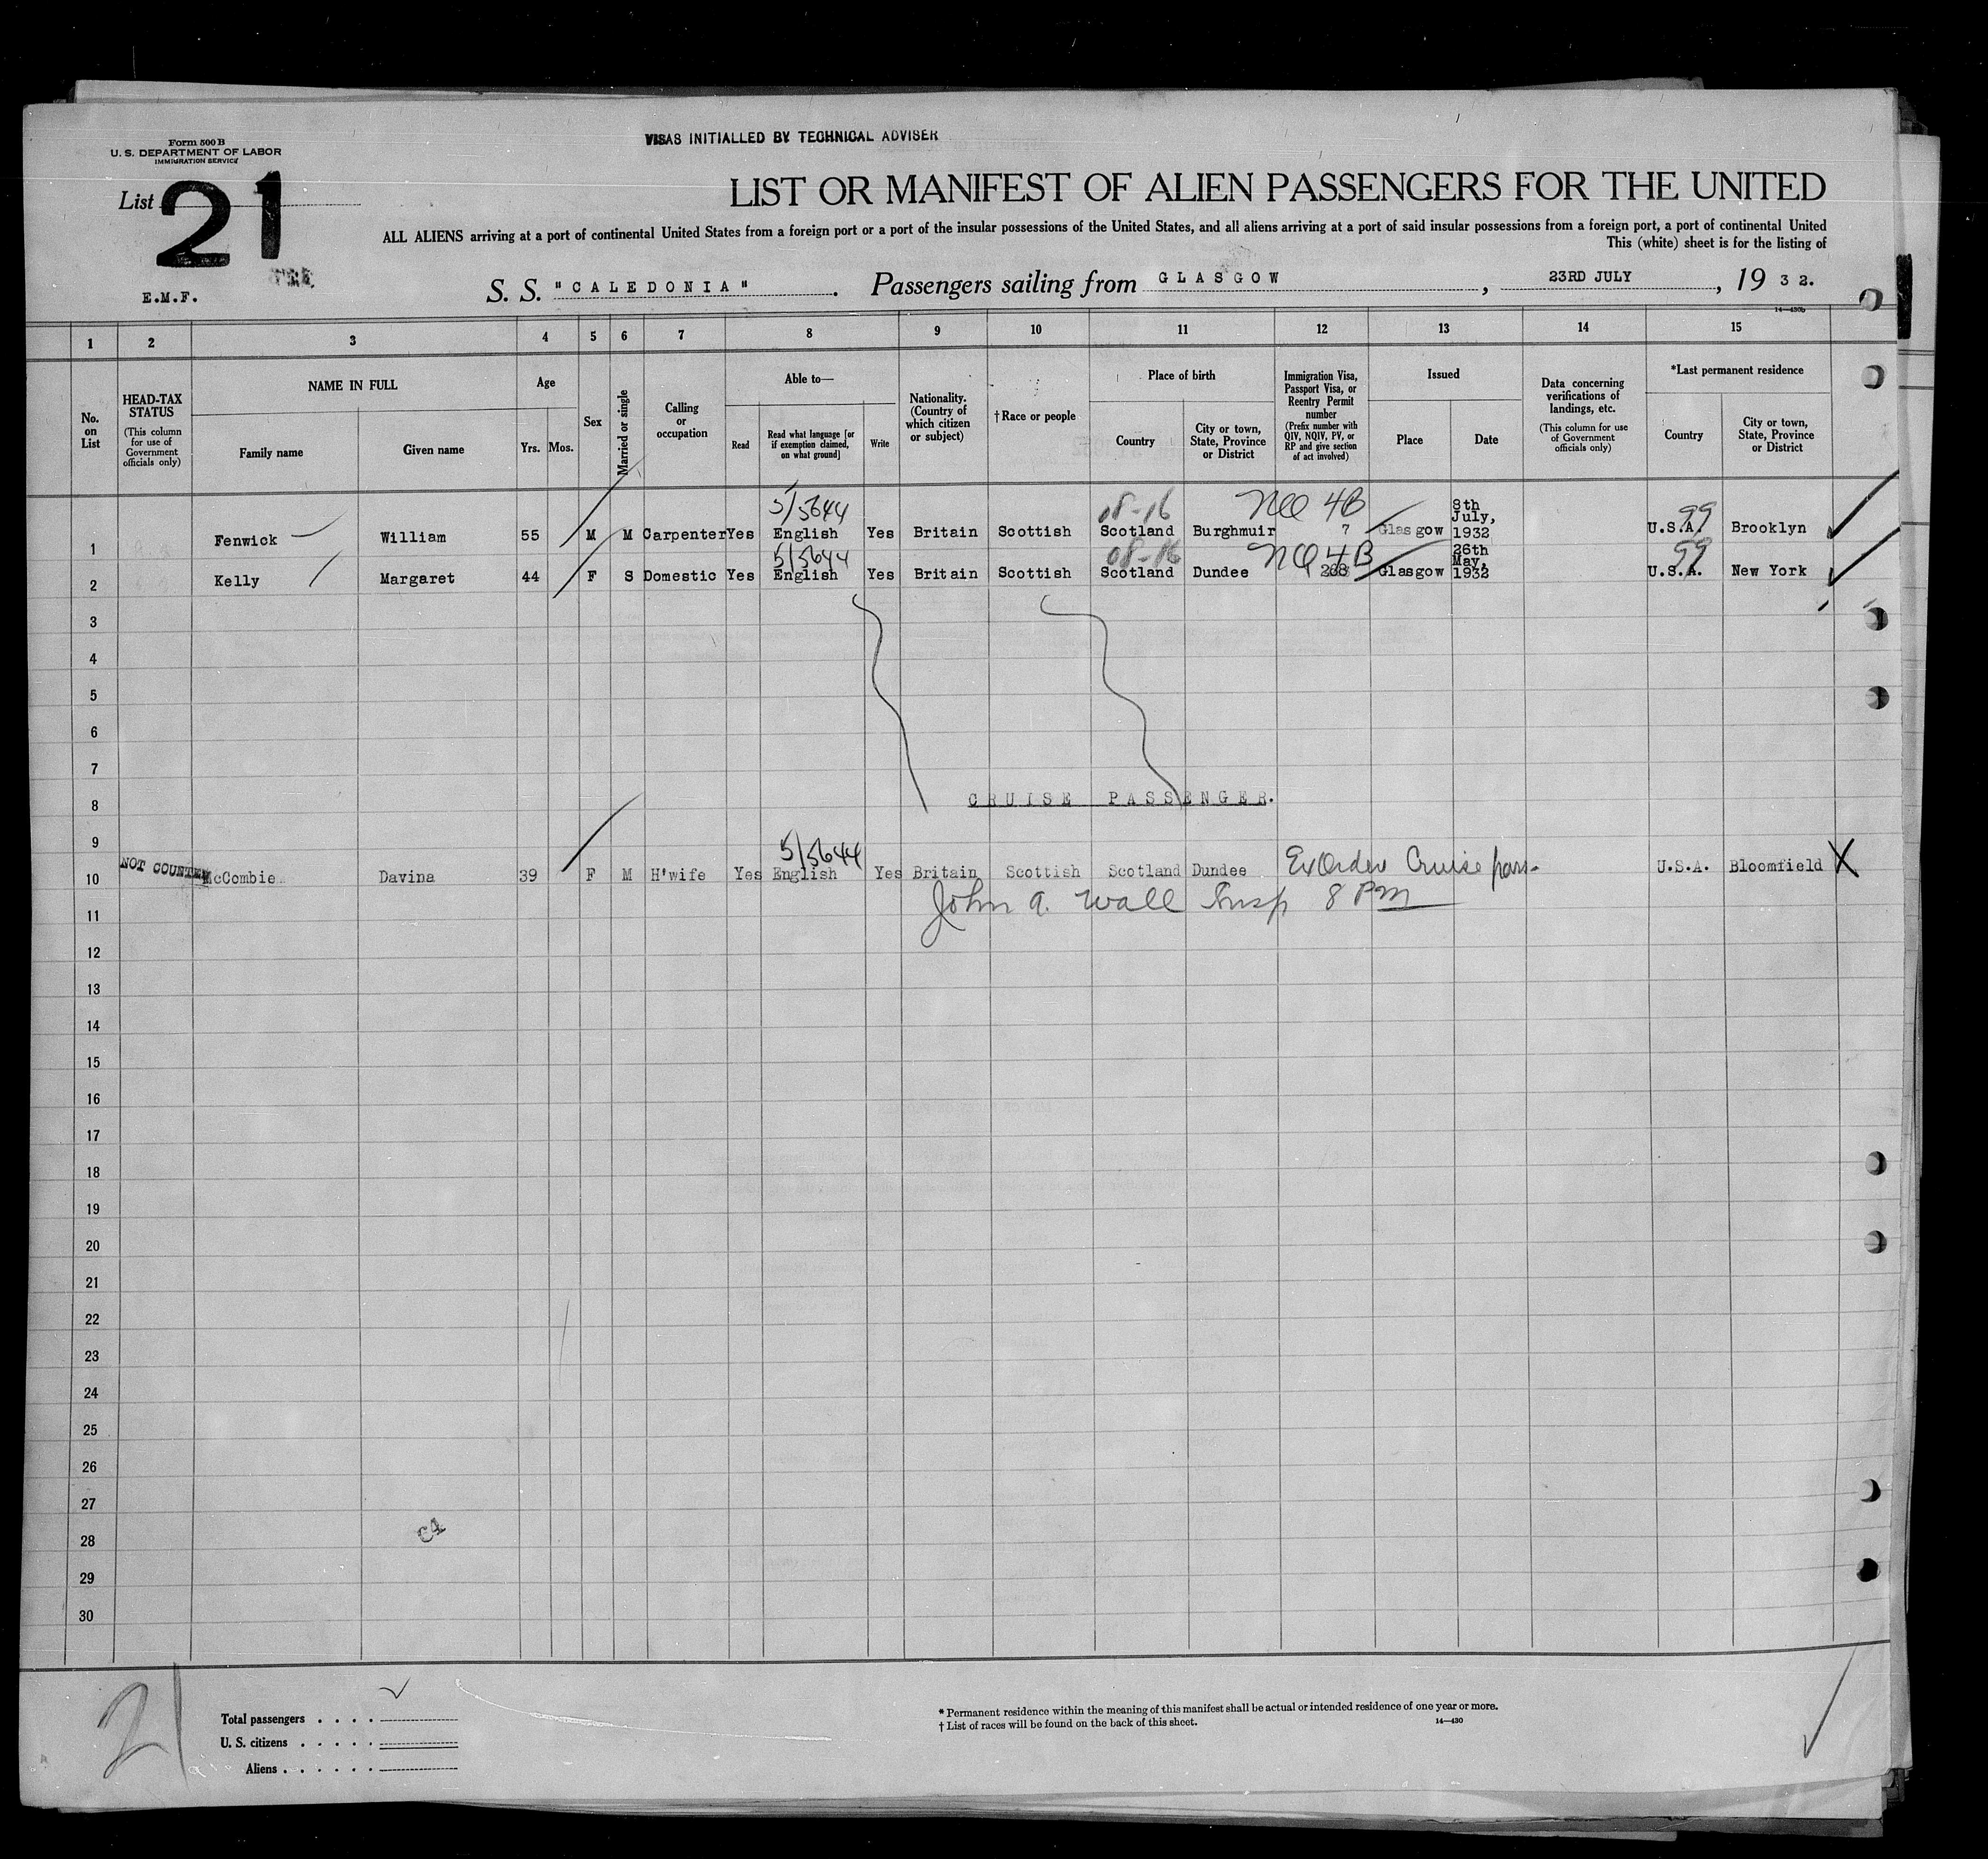 Form 500 B
U. S. DEPARTMENT OF LABOR
IMMIGRATION SERVICE
VISAS INITIALLED BY TECHNICAL ADVISER
List 21
LIST OR MANIFEST OF ALIEN PASSENGERS FOR THE UNITED
ALL ALIENS arriving at a port of continental United States from a foreign port or a port of the insular possessions of the United States, and all aliens arriving at a port of said insular possessions from a foreign port, a port of continental United
This (white) sheet is for the listing of
E.M.F.
S. S. "CALEDONIA". Passengers sailing from GLASGOW, 23RD JULY, 1932.
14—430b
1 2 3 4 5 6 7 8 9 10 11 12 13 14 15
No. on List
HEAD-TAX STATUS (This column for use of Government officials only)
NAME IN FULL
Family name
Given name
Age
Yrs.
Mos.
Sex
Married or single
Calling or occupation
Able to—
Read
Read what language [or if exemption claimed, on what ground]
Write
Nationality. (Country of which citizen or subject)
†Race or people
Place of birth
Country
City or town, State, Province or District
Immigration Visa, Passport Visa, or Reentry Permit number (Prefix number with QIV, NQIV, PV, or RP and give section of act involved)
Issued
Place
Date
Data concerning verifications of landings, etc. (This column for use of Government officials only)
*Last permanent residence
Country
City or town, State, Province or District
5/5644 08-16 4B 99
1 Fenwick William 55 M M Carpenter Yes English Yes Britain Scottish Scotland Burghmuir 7 Glasgow 8th July, 1932 U.S.A. Brooklyn
5/5644 08-16 4B 99
2 Kelly Margaret 44 F S Domestic Yes English Yes Britain Scottish Scotland Dundee 268 Glasgow 26th May, 1932 U.S.A. New York
3
4
5
6
7
8 CRUISE PASSENGER.
9
5/5644
10 NOT COUNTED McCombie Davina 39 F M H'wife Yes English Yes Britain Scottish Scotland Dundee Ex Order Cruise pass. U.S.A. Bloomfield X
John A. Wall Insp 8 PM
11
12
13
14
15
16
17
18
19
20
21
22
23
24
25
26
27
28
29
30
21
Total passengers . . . .
U. S. citizens . . . . .
Aliens . . . . . .
* Permanent residence within the meaning of this manifest shall be actual or intended residence of one year or more.
† List of races will be found on the back of this sheet.
14—430